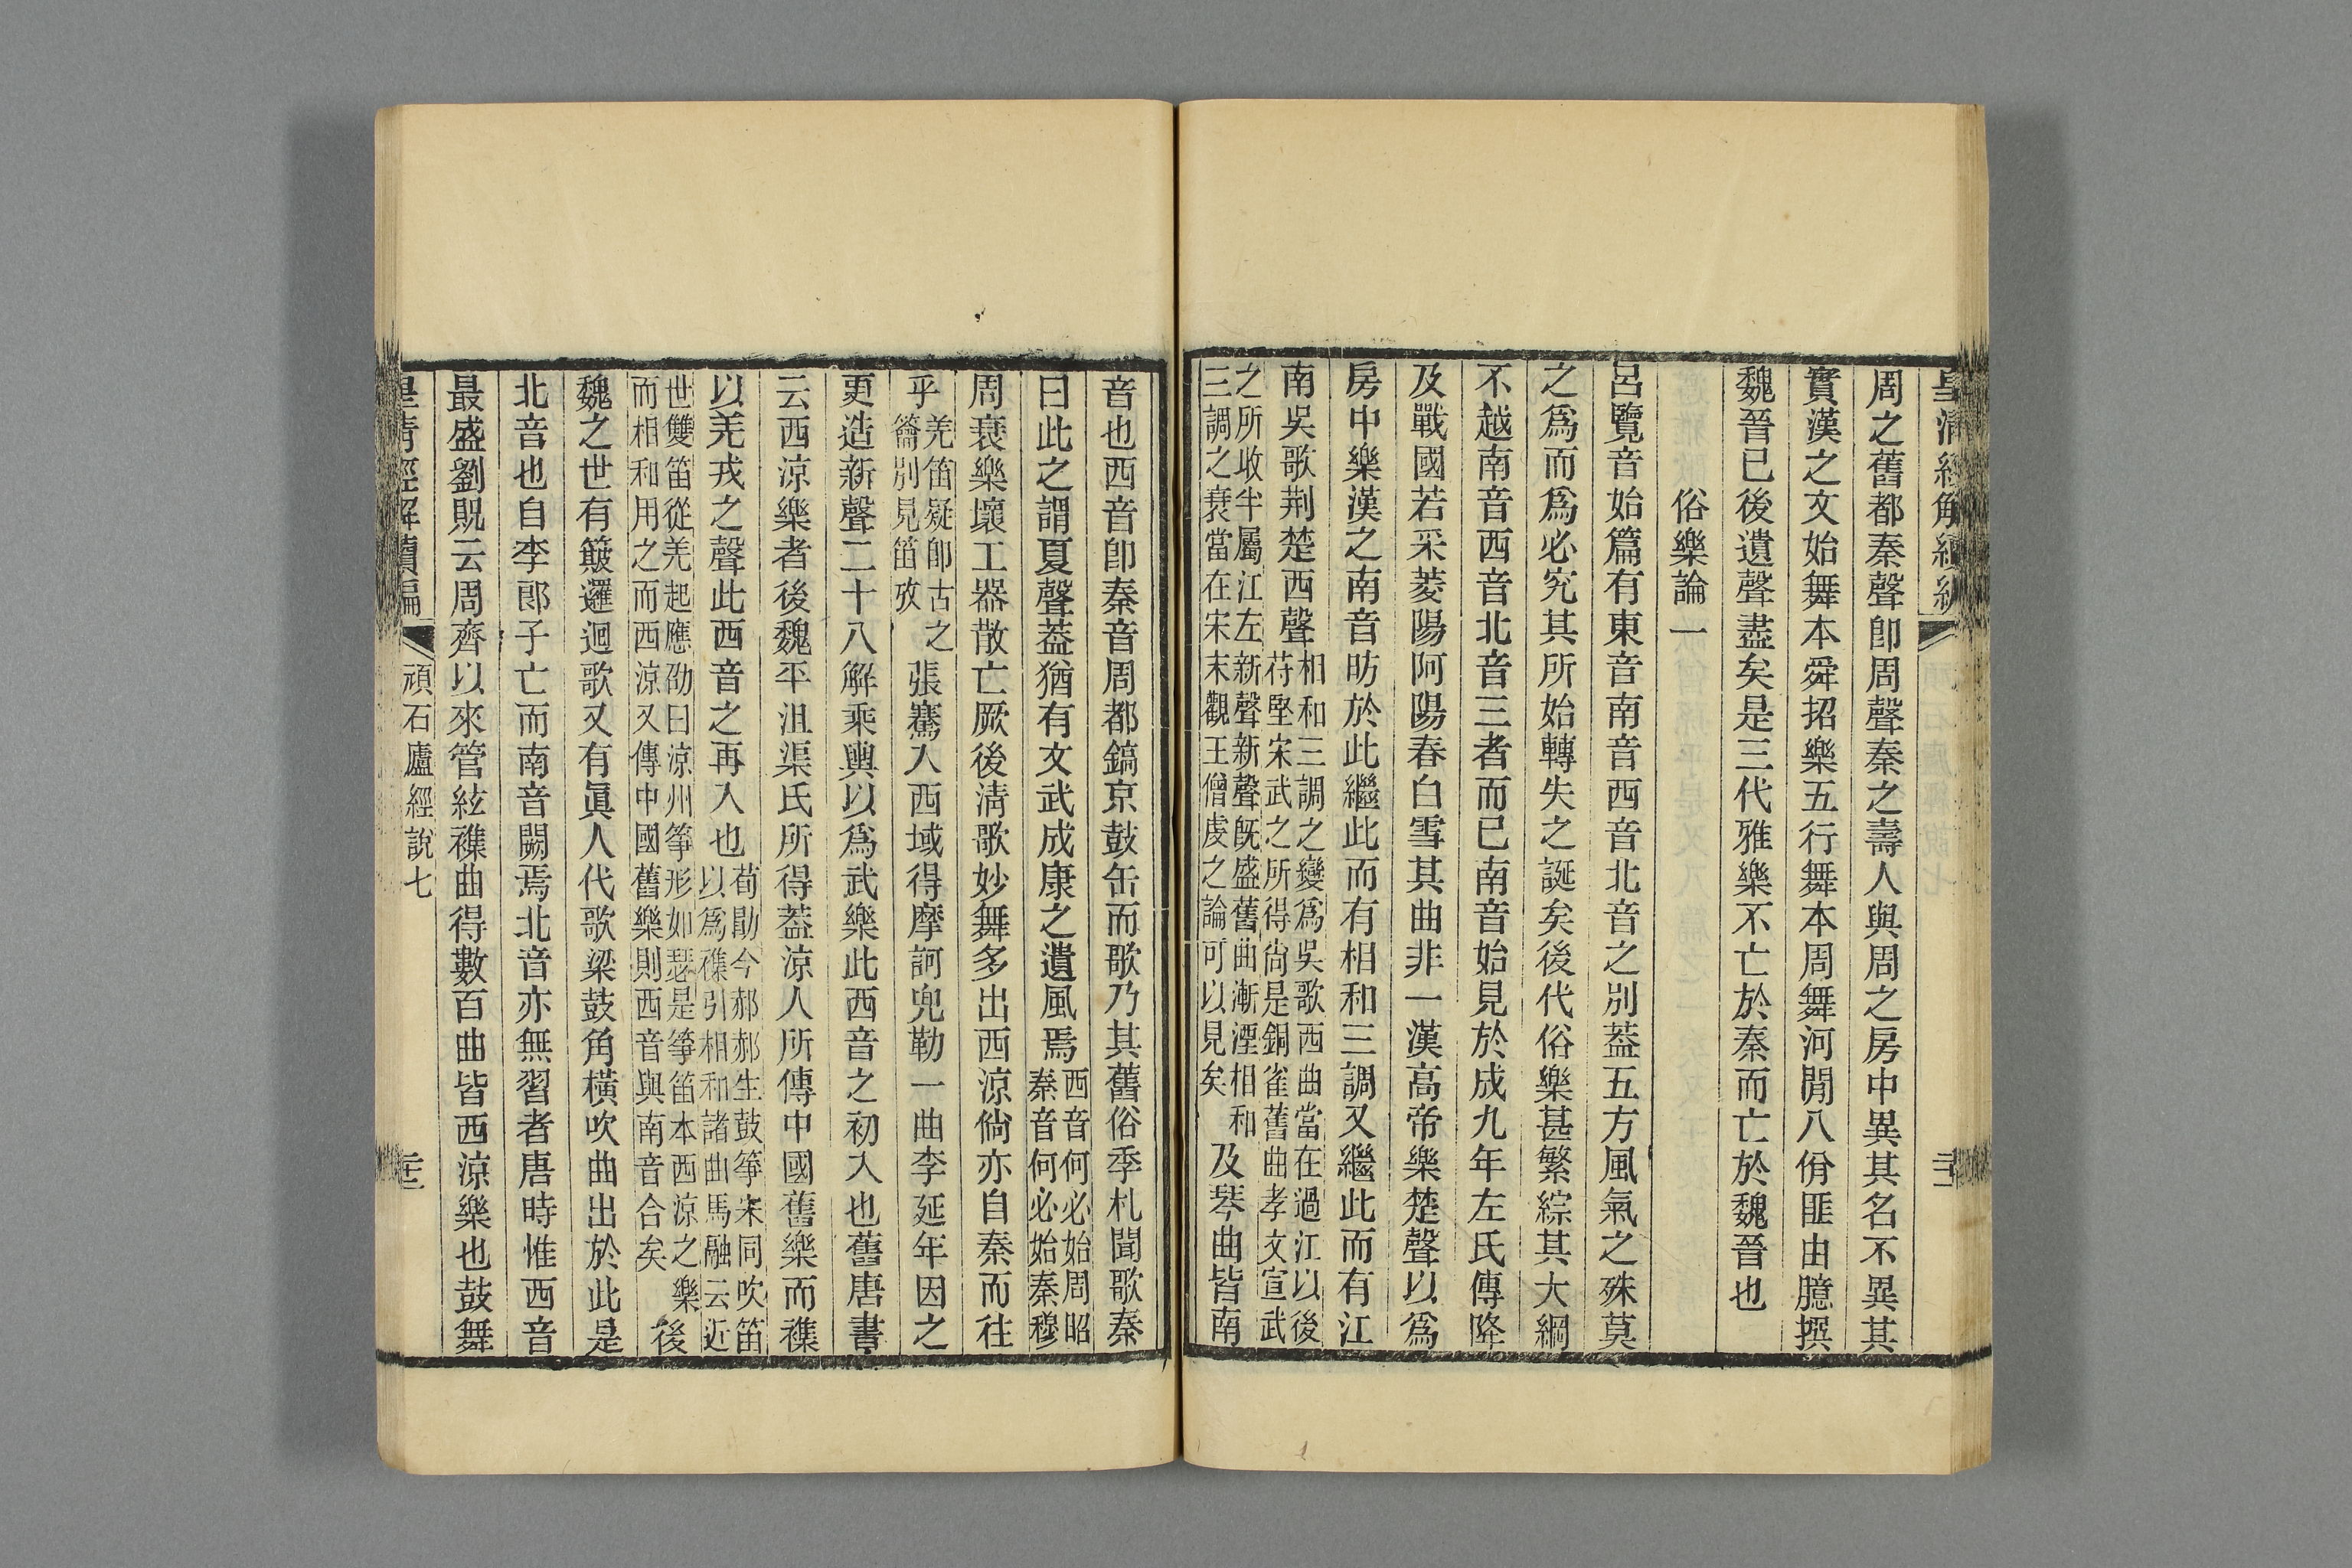 周之舊都秦聲卽周聲秦之壽人與周之房中異其名不異其
實漢之文始舞本舜招樂五行舞本周舞河閒八佾匪由臆撰
魏晉已後遺聲盡矣是三代雅樂不亡於秦而亡於魏晉也
俗樂論一
呂覽音始篇有東音南音西音北音之別葢五方風氣之殊莫
之爲而爲必究其所始轉失之誕矣後代俗樂甚繁綜其大綱
不越南音西音北音三者而已南音始見於成九年左氏傳降
及戰國若采菱陽阿陽春白雪其曲非一漢高帝樂楚聲以爲
房中樂漢之南音昉於此繼此而有相和三調又繼此而有江
南吳歌荆楚西聲
相和三調之變爲吳歌西曲當在過江以後
苻堅宋武之所得尙是銅雀舊曲孝文宣武
之所收半屬江左新聲新聲旣盛舊曲漸湮相和
三調之衰當在宋末觀王僧虔之論可以見矣
及琴曲皆南
音也西音卽秦音周都鎬京鼓缶而歌乃其舊俗季札聞歌秦
曰此之謂夏聲葢猶有文武成康之遺風焉
西音何必始周昭
秦音何必始秦穆
周衰樂壞工器散亡厥後淸歌妙舞多出西涼倘亦自秦而往
乎
羌笛疑卽古之
籥別見笛攷
張騫入西域得摩訶兜勒一曲李延年因之
更造新聲二十八解乘輿以爲武樂此西音之初入也舊唐書
云西涼樂者後魏平沮渠氏所得葢涼人所傳中國舊樂而襍
以羌戎之聲此西音之再入也
荀勖今郝郝生鼓箏宋同吹笛
以爲襍引相和諸曲馬融云近
世雙笛從羌起應劭曰涼州箏形如瑟是箏笛本西涼之樂
而相和用之而西涼又傳中國舊樂則西音與南音合矣
後
魏之世有簸邏迴歌又有眞人代歌梁鼓角橫吹曲出於此是
北音也自李郎子亡而南音闕焉北音亦無習者唐時惟西音
最盛劉貺云周齊以來管絃襍曲得數百曲皆西涼樂也鼓舞
皇淸經解續編
頑石廬經說七